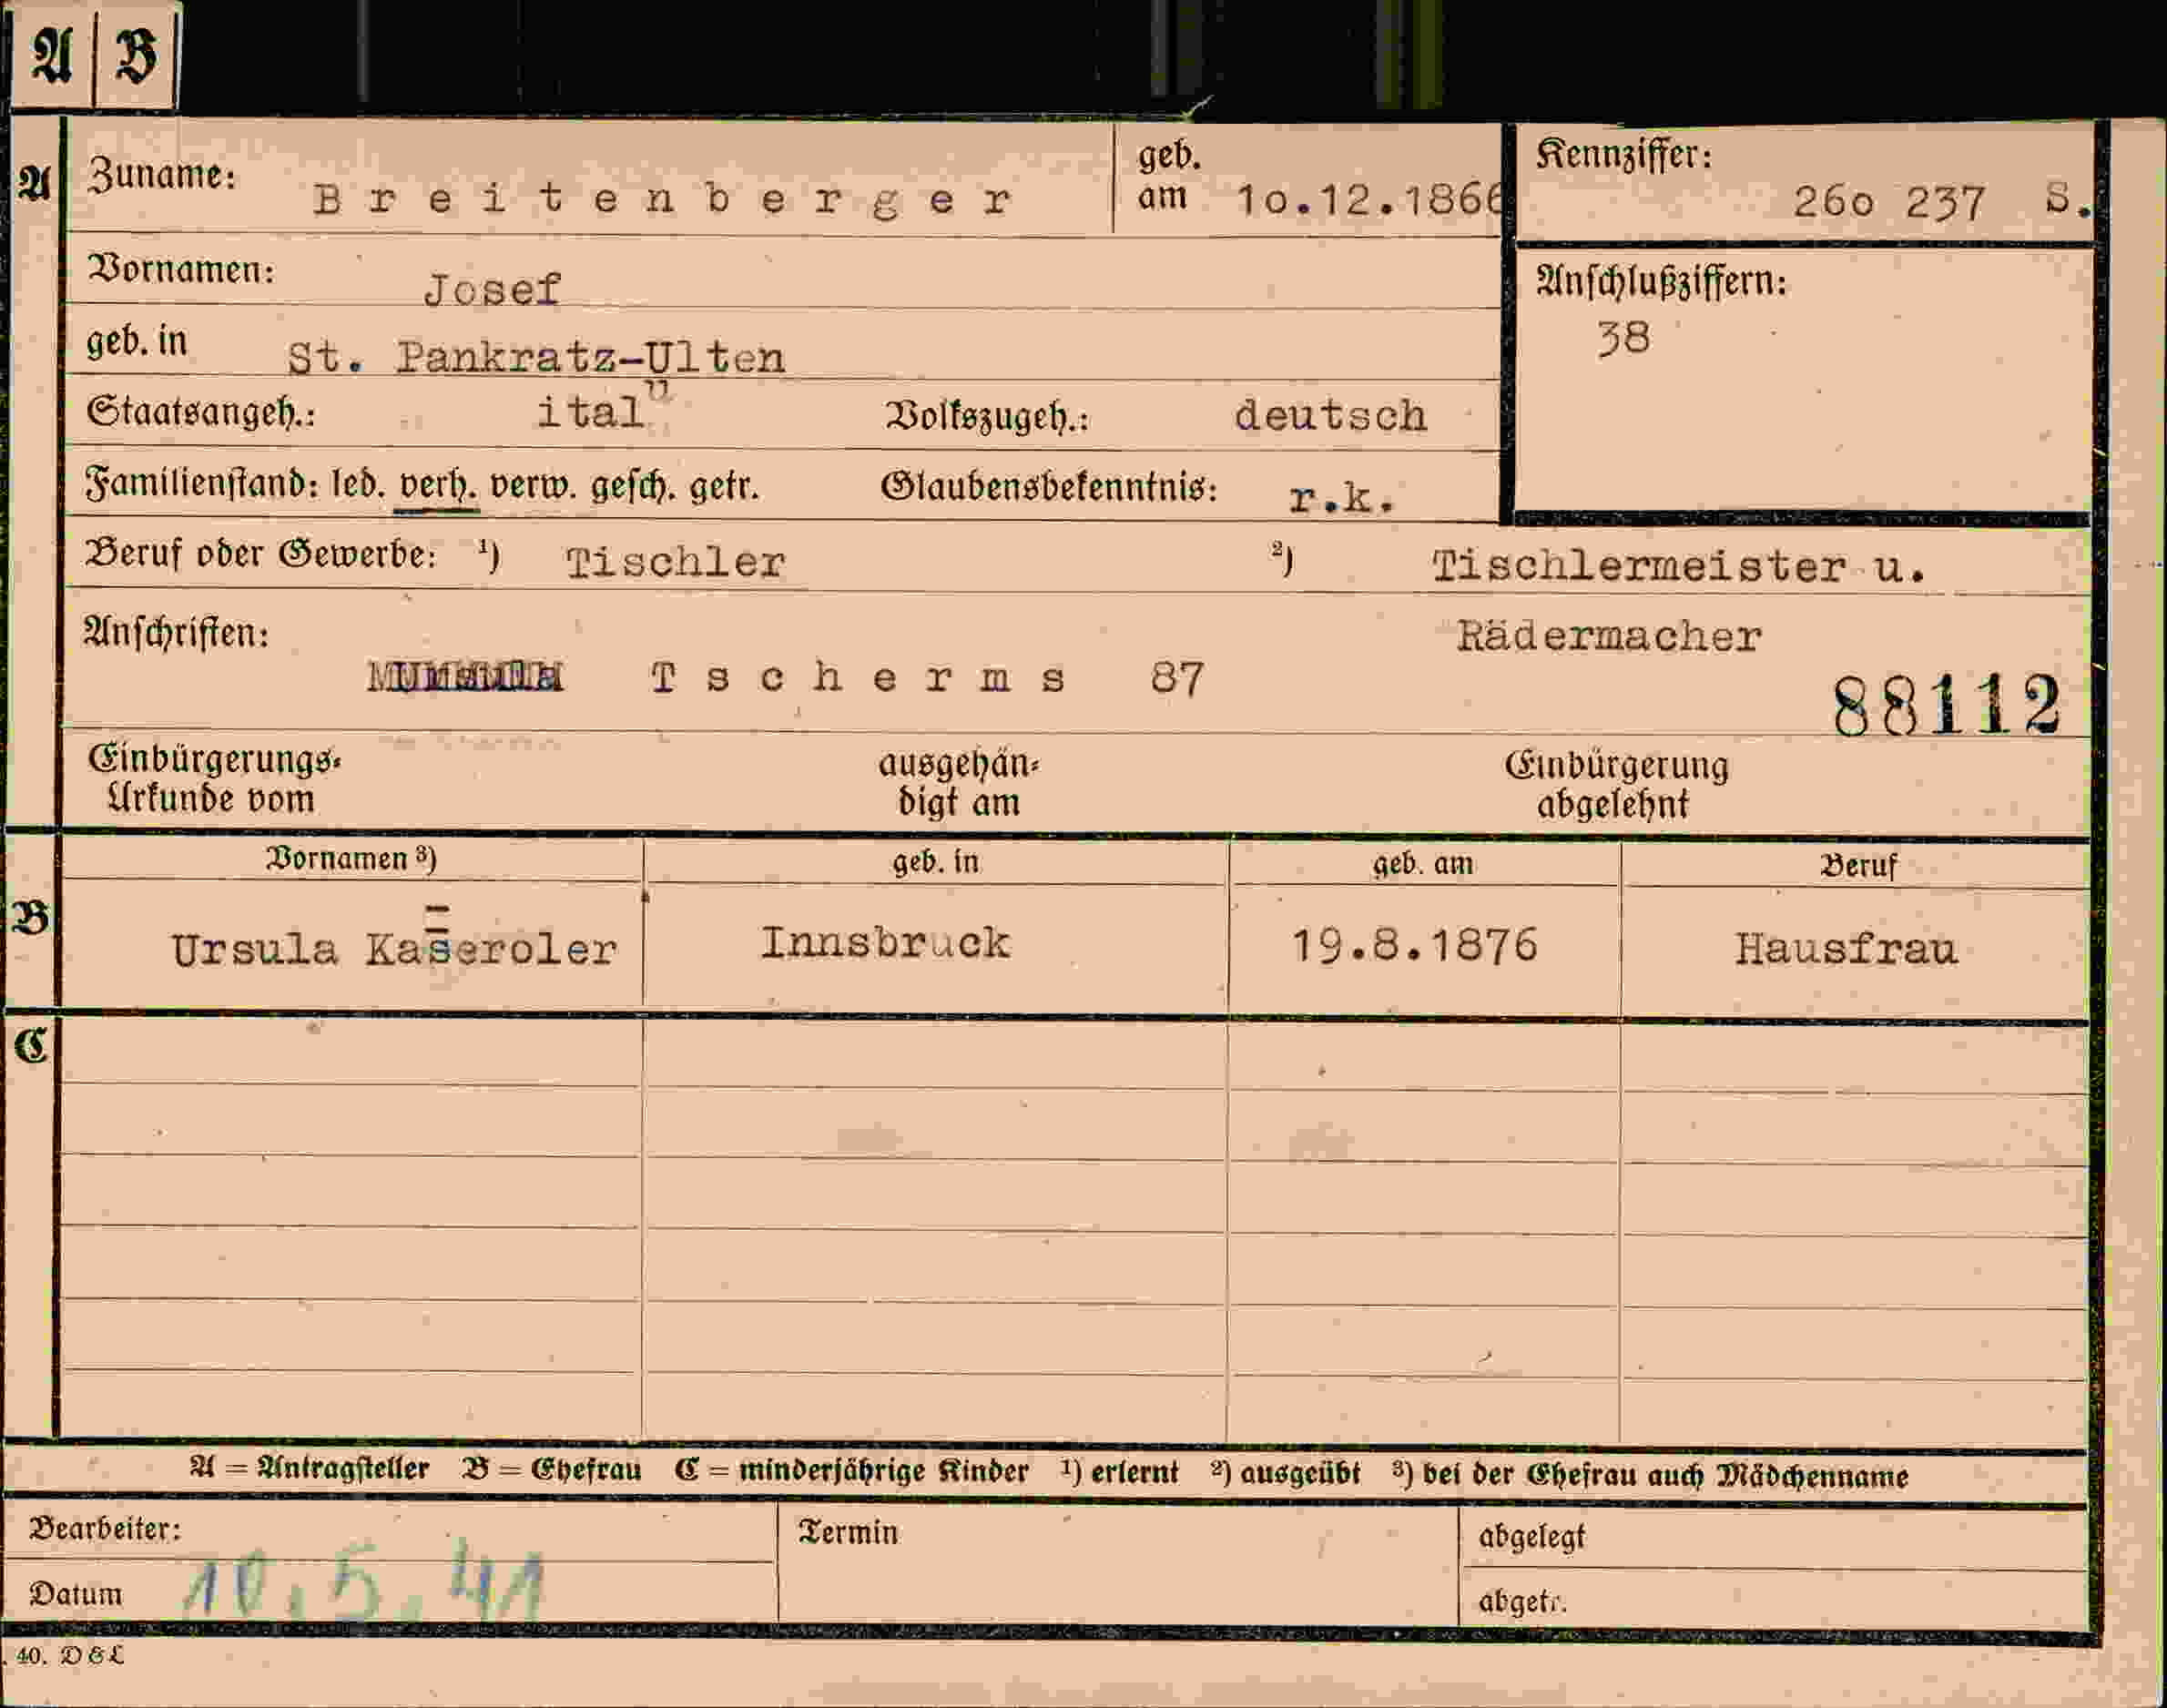 A B
A Zuname: Breitenberger geb. am 10.12.1866 Kennziffer: 260 237 S.
Vornamen: Josef Anschlußziffern:
geb. in St. Pankratz-Ulten 38
Staatsangeh.: ital Volkszugeh.: deutsch
Familienstand: led. verh. verw. gesch. getr. Glaubensbekenntnis: r.k.
Beruf oder Gewerbe: ¹) Tischler ²) Tischlermeister u.
Anschriften: Rädermacher
Tscherms 87 88112
Einbürgerungs- ausgehän- Einbürgerung
Urkunde vom digt am abgelehnt
Vornamen ³) geb. in geb. am Beruf
B Ursula Kaseroler Innsbruck 19.8.1876 Hausfrau
C
A = Antragsteller B = Ehefrau C = minderjährige Kinder ¹) erlernt ²) ausgeübt ³) bei der Ehefrau auch Mädchenname
Bearbeiter: Termin abgelegt
Datum 10.5.41 abgetr.
40. D&L